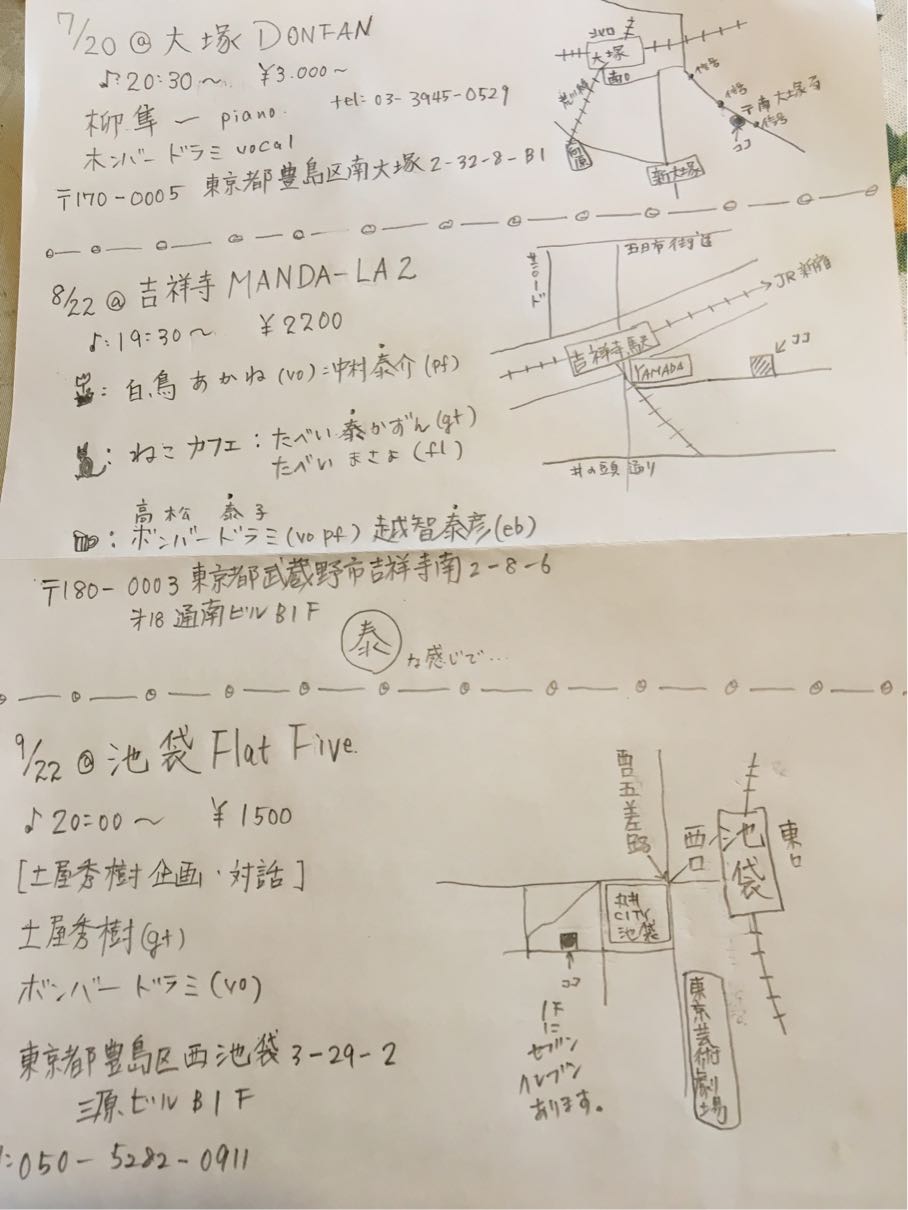 7/20 @ 大塚 DONFAN
♪:20:30〜 ¥3.000〜
柳隼一 piano.
tel: 03-3945-0529
ボンバードラミ vocal
〒170-0005 東京都豊島区南大塚2-32-8-B1
北口
大塚
南口
荒川線
向原
新大塚
信号
信号
〒南大塚局
信号
ココ
8/22 @ 吉祥寺 MANDA-LA2
♪:19:30〜 ¥2200
: 白鳥あかね(vo):中村泰介(pf)
: ねこカフェ:たべい泰かずん(gt)
たべいまさよ(fl)
高松泰子
: ボンバードラミ(vo pf) 越智泰彦(eb)
〒180-0003 東京都武蔵野市吉祥寺南2-8-6
才18通南ビルB1F
泰 な感じで…
五日市街道
サンロード
JR新宿
吉祥寺駅
YAMADA
ココ
井の頭通り
9/22 @ 池袋 Flat Five.
♪20:00〜 ¥1500
[土屋秀樹企画・対話]
土屋秀樹(gt)
ボンバードラミ(vo)
東京都豊島区西池袋3-29-2
三原ビルB1F
:050-5282-0911
西口五差路
西口
池袋
東口
丸井
CITY
池袋
ココ
1F
に
セブン
イレブン
あります。
東京芸術劇場